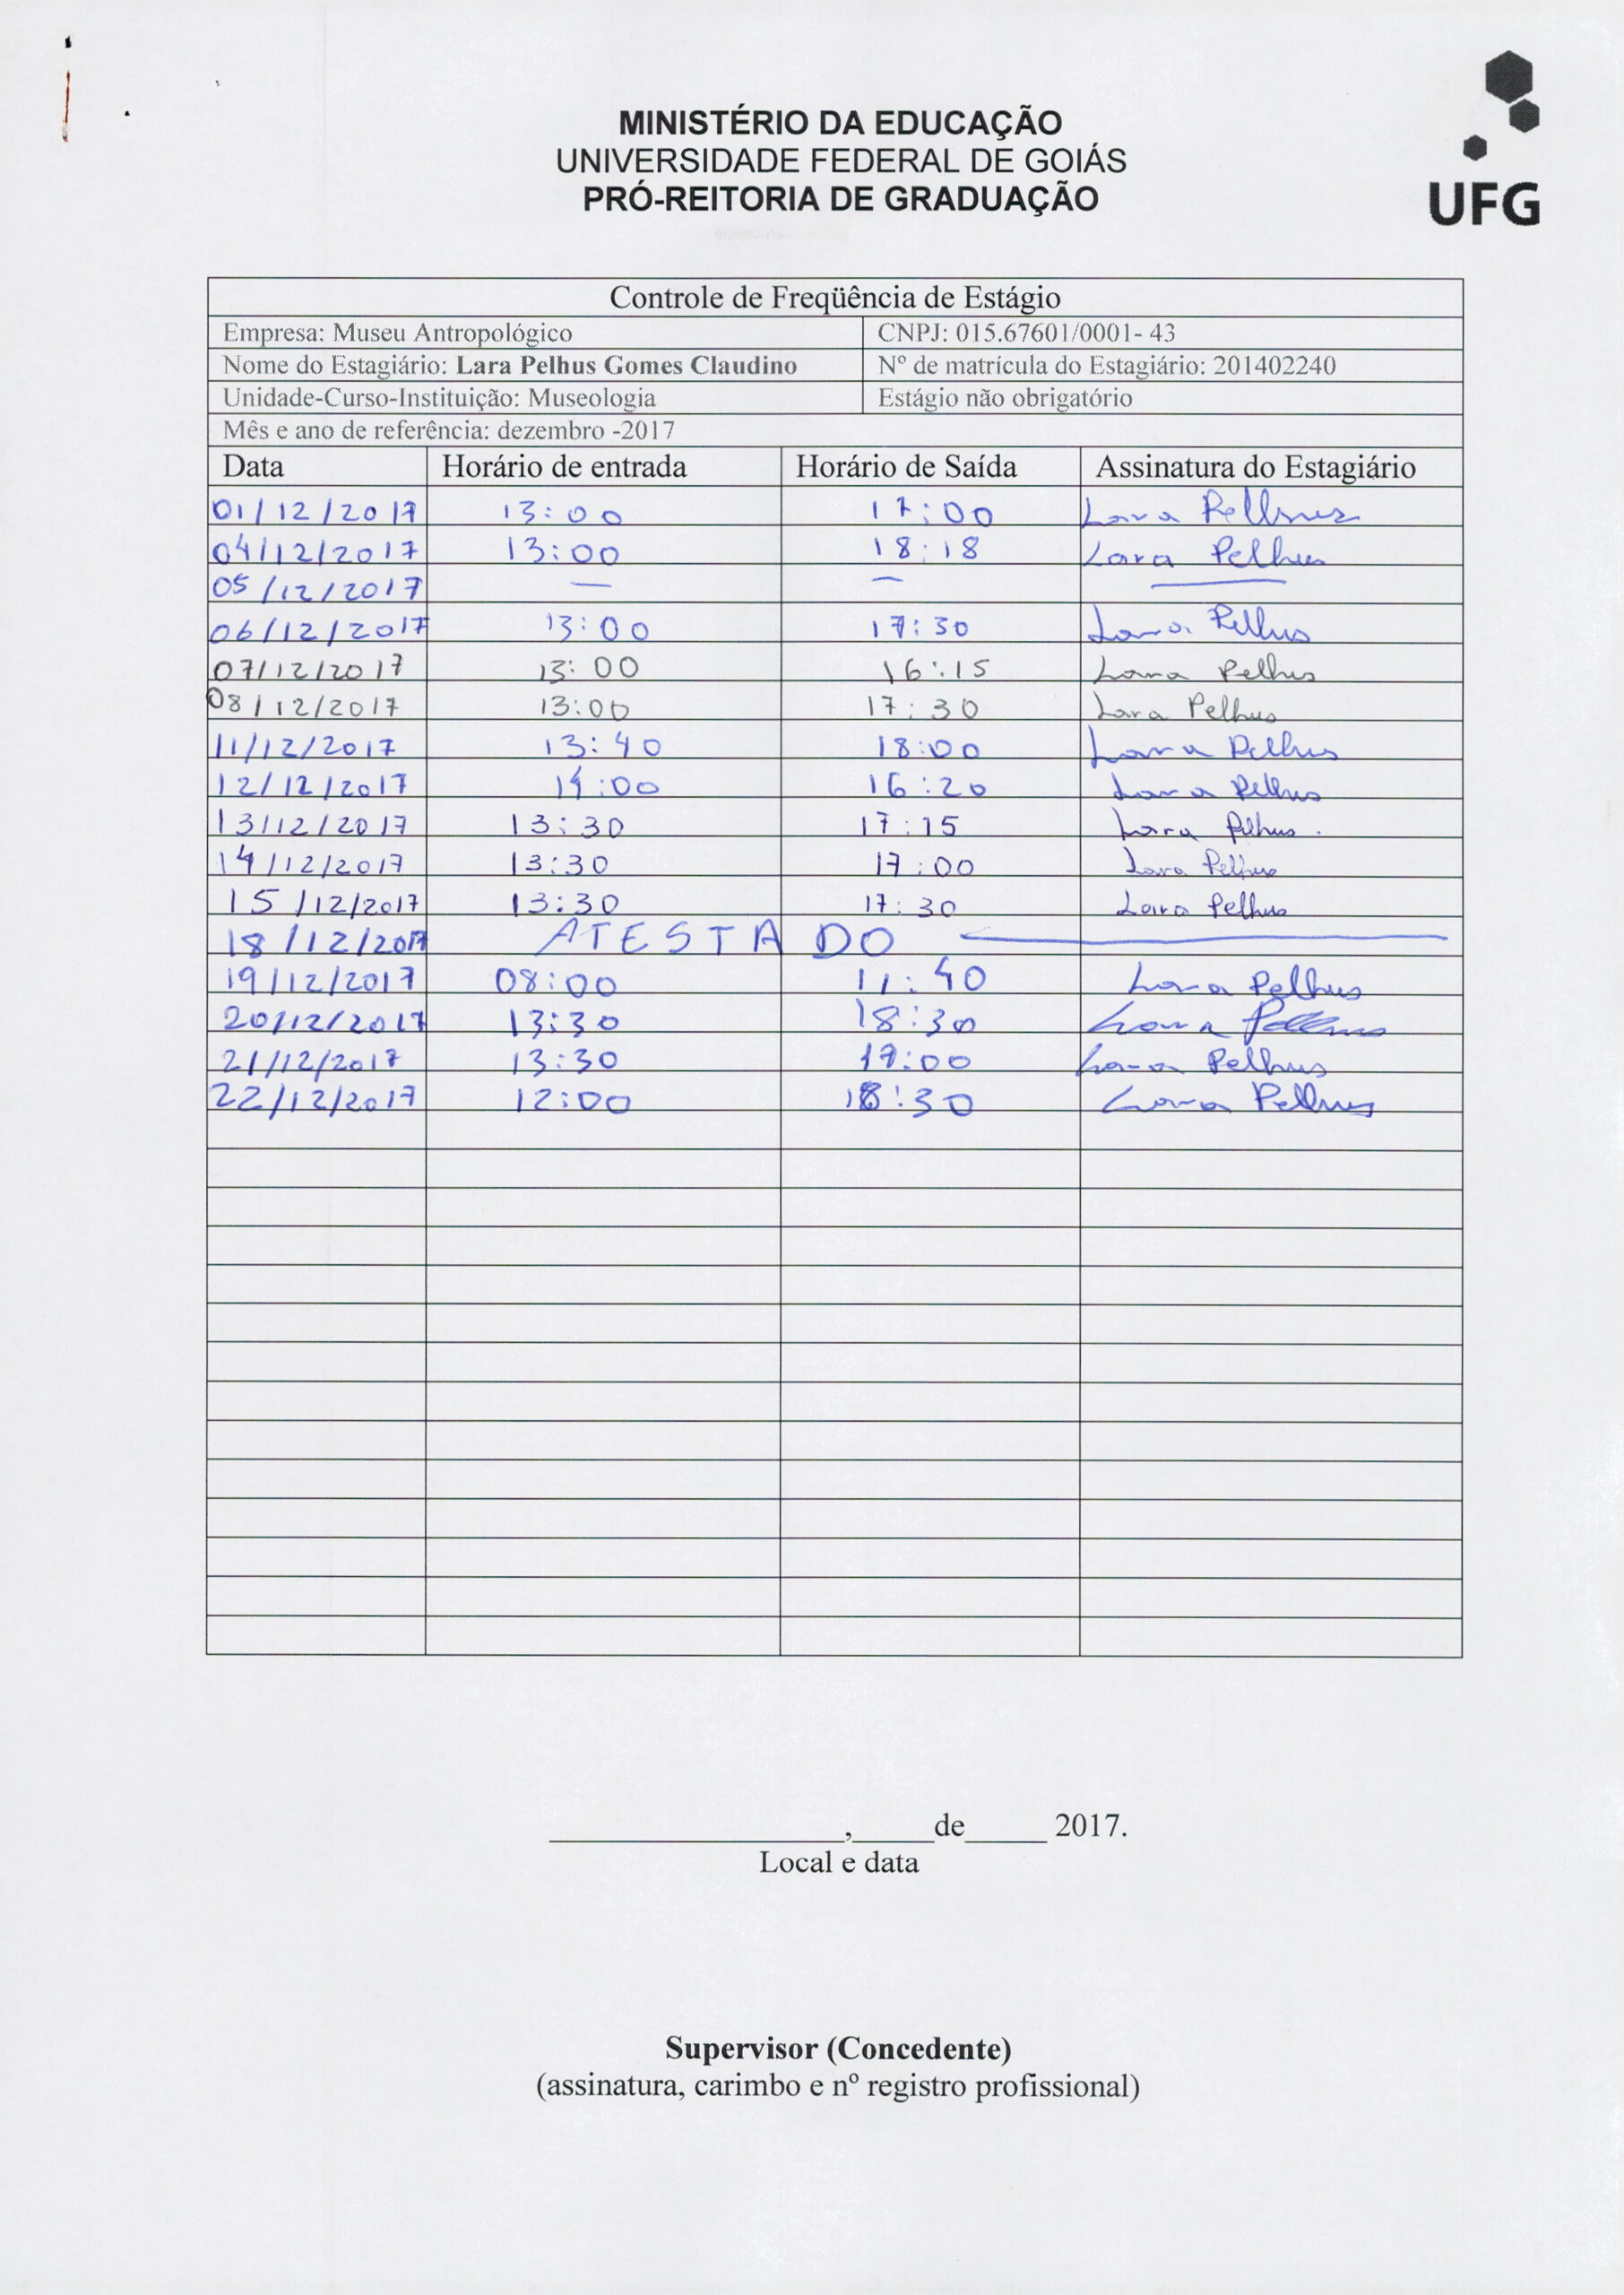 MINISTÉRIO DA EDUCAÇÃO
UNIVERSIDADE FEDERAL DE GOIÁS
PRÓ-REITORIA DE GRADUAÇÃO
UFG
Controle de Freqüência de Estágio
Empresa: Museu Antropológico CNPJ: 015.67601/0001- 43
Nome do Estagiário: Lara Pelhus Gomes Claudino Nº de matrícula do Estagiário: 201402240
Unidade-Curso-Instituição: Museologia Estágio não obrigatório
Mês e ano de referência: dezembro -2017
Data Horário de entrada Horário de Saída Assinatura do Estagiário
01/12/2017 13:00 17:00 Lara Pelhus
04/12/2017 13:00 18:18 Lara Pelhus
05/12/2017 — — —
06/12/2017 13:00 17:30 Lara Pelhus
07/12/2017 13:00 16:15 Lara Pelhus
08/12/2017 13:00 17:30 Lara Pelhus
11/12/2017 13:40 18:00 Lara Pelhus
12/12/2017 14:00 16:20 Lara Pelhus
13/12/2017 13:30 17:15 Lara Pelhus.
14/12/2017 13:30 17:00 Lara Pelhus
15/12/2017 13:30 17:30 Lara Pelhus
18/12/2017 ATESTADO —
19/12/2017 08:00 11:40 Lara Pelhus
20/12/2017 13:30 18:30 Lara Pelhus
21/12/2017 13:30 17:00 Lara Pelhus
22/12/2017 12:00 18:30 Lara Pelhus
____________________,_____de_____ 2017.
Local e data
Supervisor (Concedente)
(assinatura, carimbo e nº registro profissional)